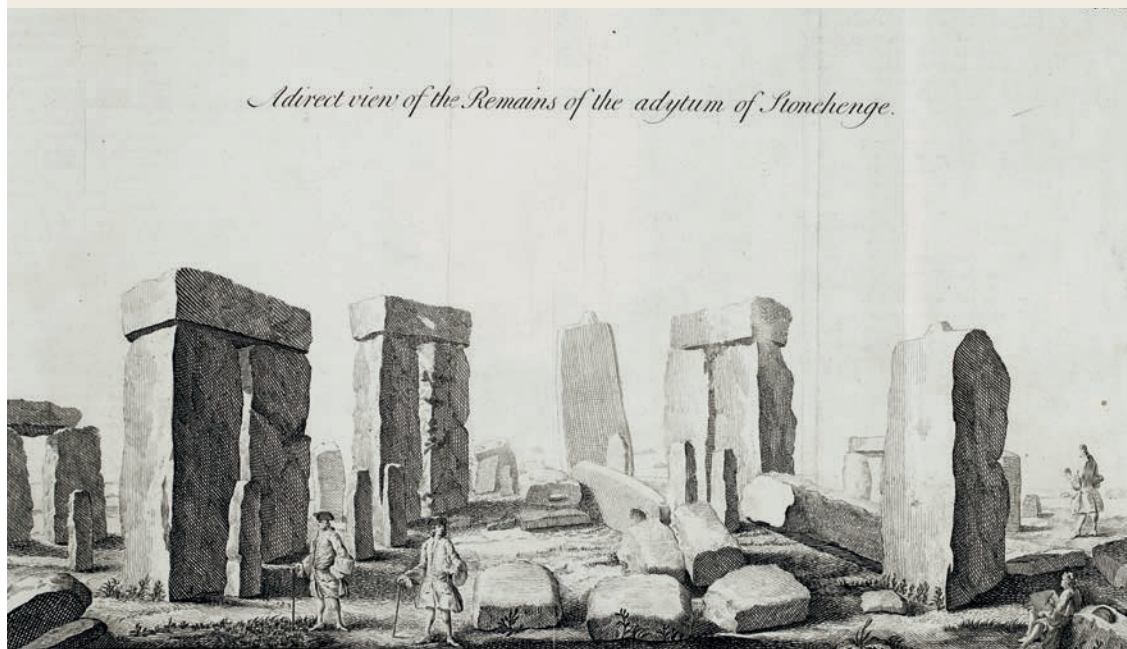 A direct view of the Remains of the adytum of Stonehenge.